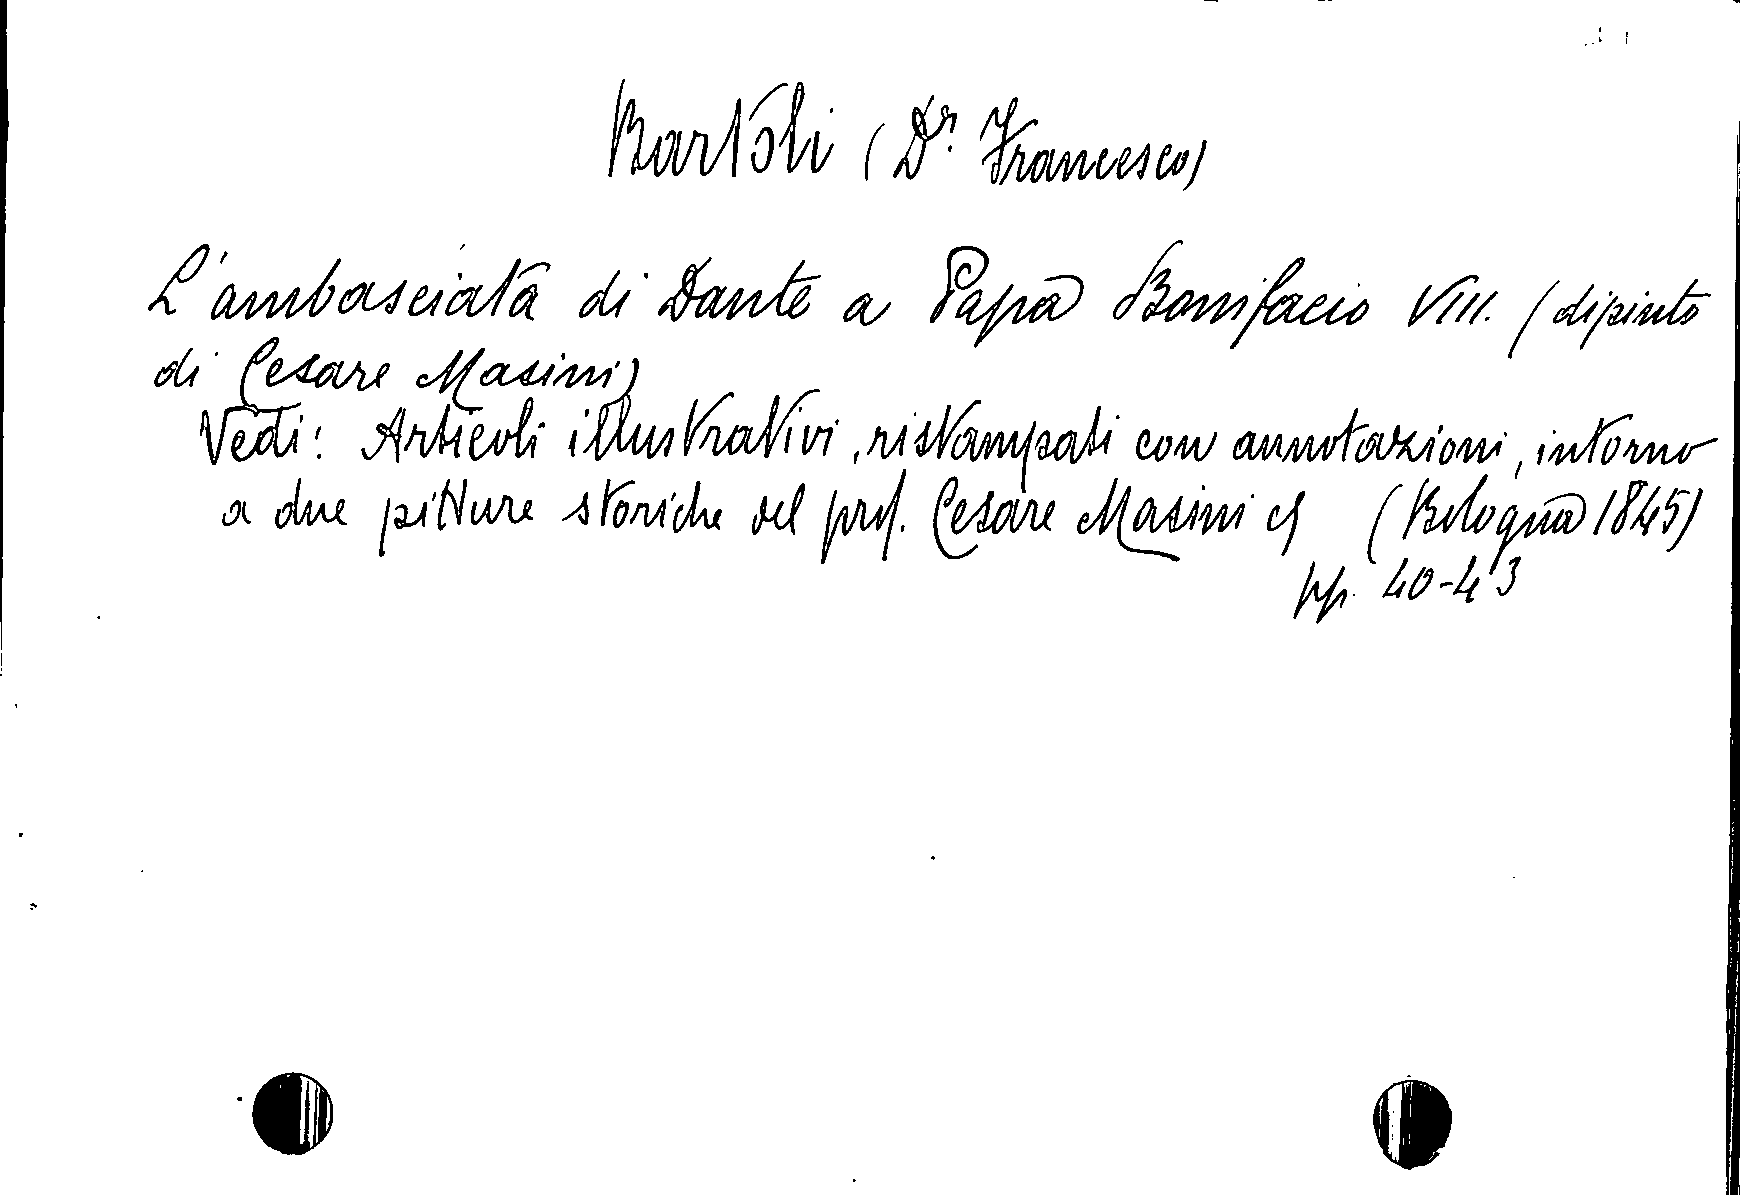 Bartoli (Dr. Francesco)
L'ambasciata di Dante a Papa Bonifacio VIII. (dipinto
di Cesare Masini)
Vedi: Articoli illustrativi, ristampati con annotazioni, intorno
a due pitture storiche del prof. Cesare Masini (Bologna 1845)
pp. 40-43